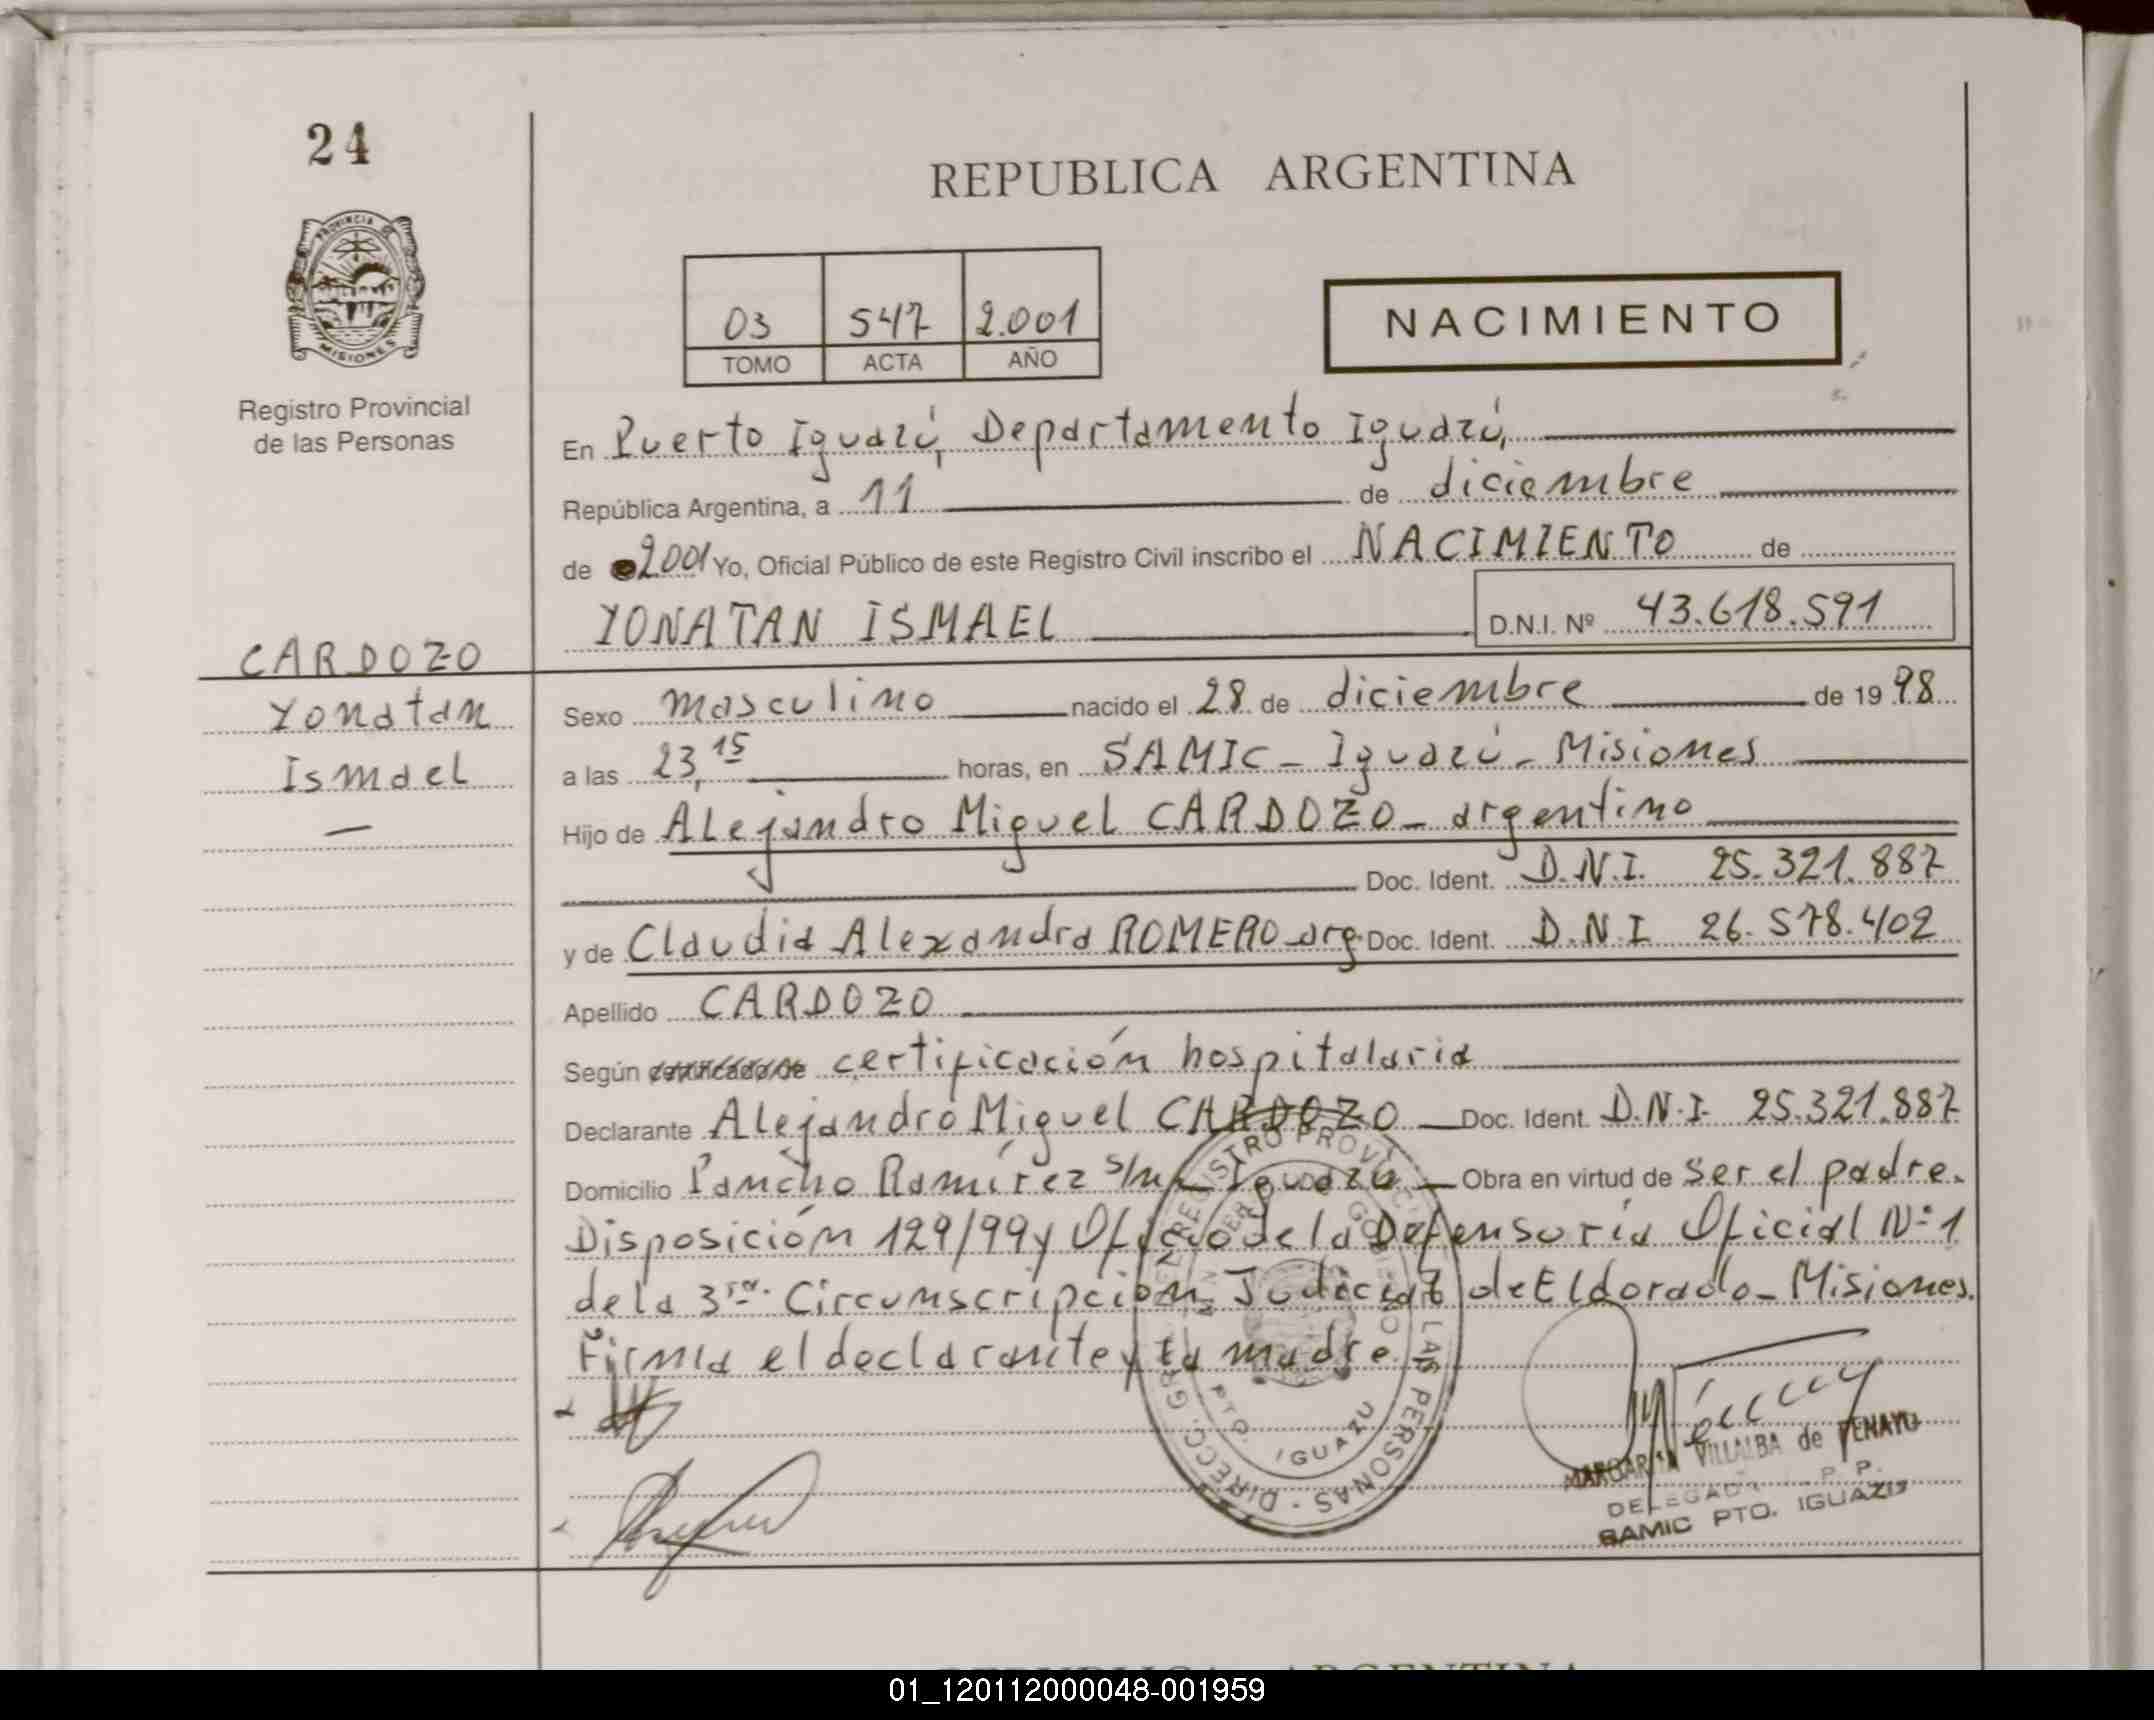 24
REPUBLICA ARGENTINA
PROVINCIA DE
MISIONES
Registro Provincial
de las Personas
03 547 2.001
TOMO ACTA AÑO
NACIMIENTO
En Puerto Iguazú, Departamento Iguazú,
República Argentina, a 11 de diciembre
de 2001 Yo, Oficial Público de este Registro Civil inscribo el NACIMIENTO de
YONATAN ISMAEL D.N.I. Nº 43.618.591
CARDOZO
Yonatan
Ismael
Sexo masculino nacido el 28 de diciembre de 19 98
a las 23,15 horas, en SAMIC - Iguazú - Misiones
Hijo de Alejandro Miguel CARDOZO - argentino
Doc. Ident. D.N.I. 25.321.887
y de Claudia Alexandra ROMERO - arg. Doc. Ident. D.N.I 26.578.402
Apellido CARDOZO
Según certificado de certificación hospitalaria
Declarante Alejandro Miguel CARDOZO Doc. Ident. D.N.I. 25.321.887
Domicilio Pancho Ramírez s/n - Iguazú Obra en virtud de ser el padre.
Disposición 129/99 y Oficio de la Defensoría Oficial Nº 1
de la 3ra. Circunscripción Judicial de Eldorado - Misiones.
Firma el declarante y la madre.
REGISTRO PROVINCIAL DE LAS PERSONAS
PTO. IGUAZU
MARGARITA VILLALBA de PENAYO
SAMIC PTO. IGUAZU
REPUBLICA ARGENTINA
01_120112000048-001959